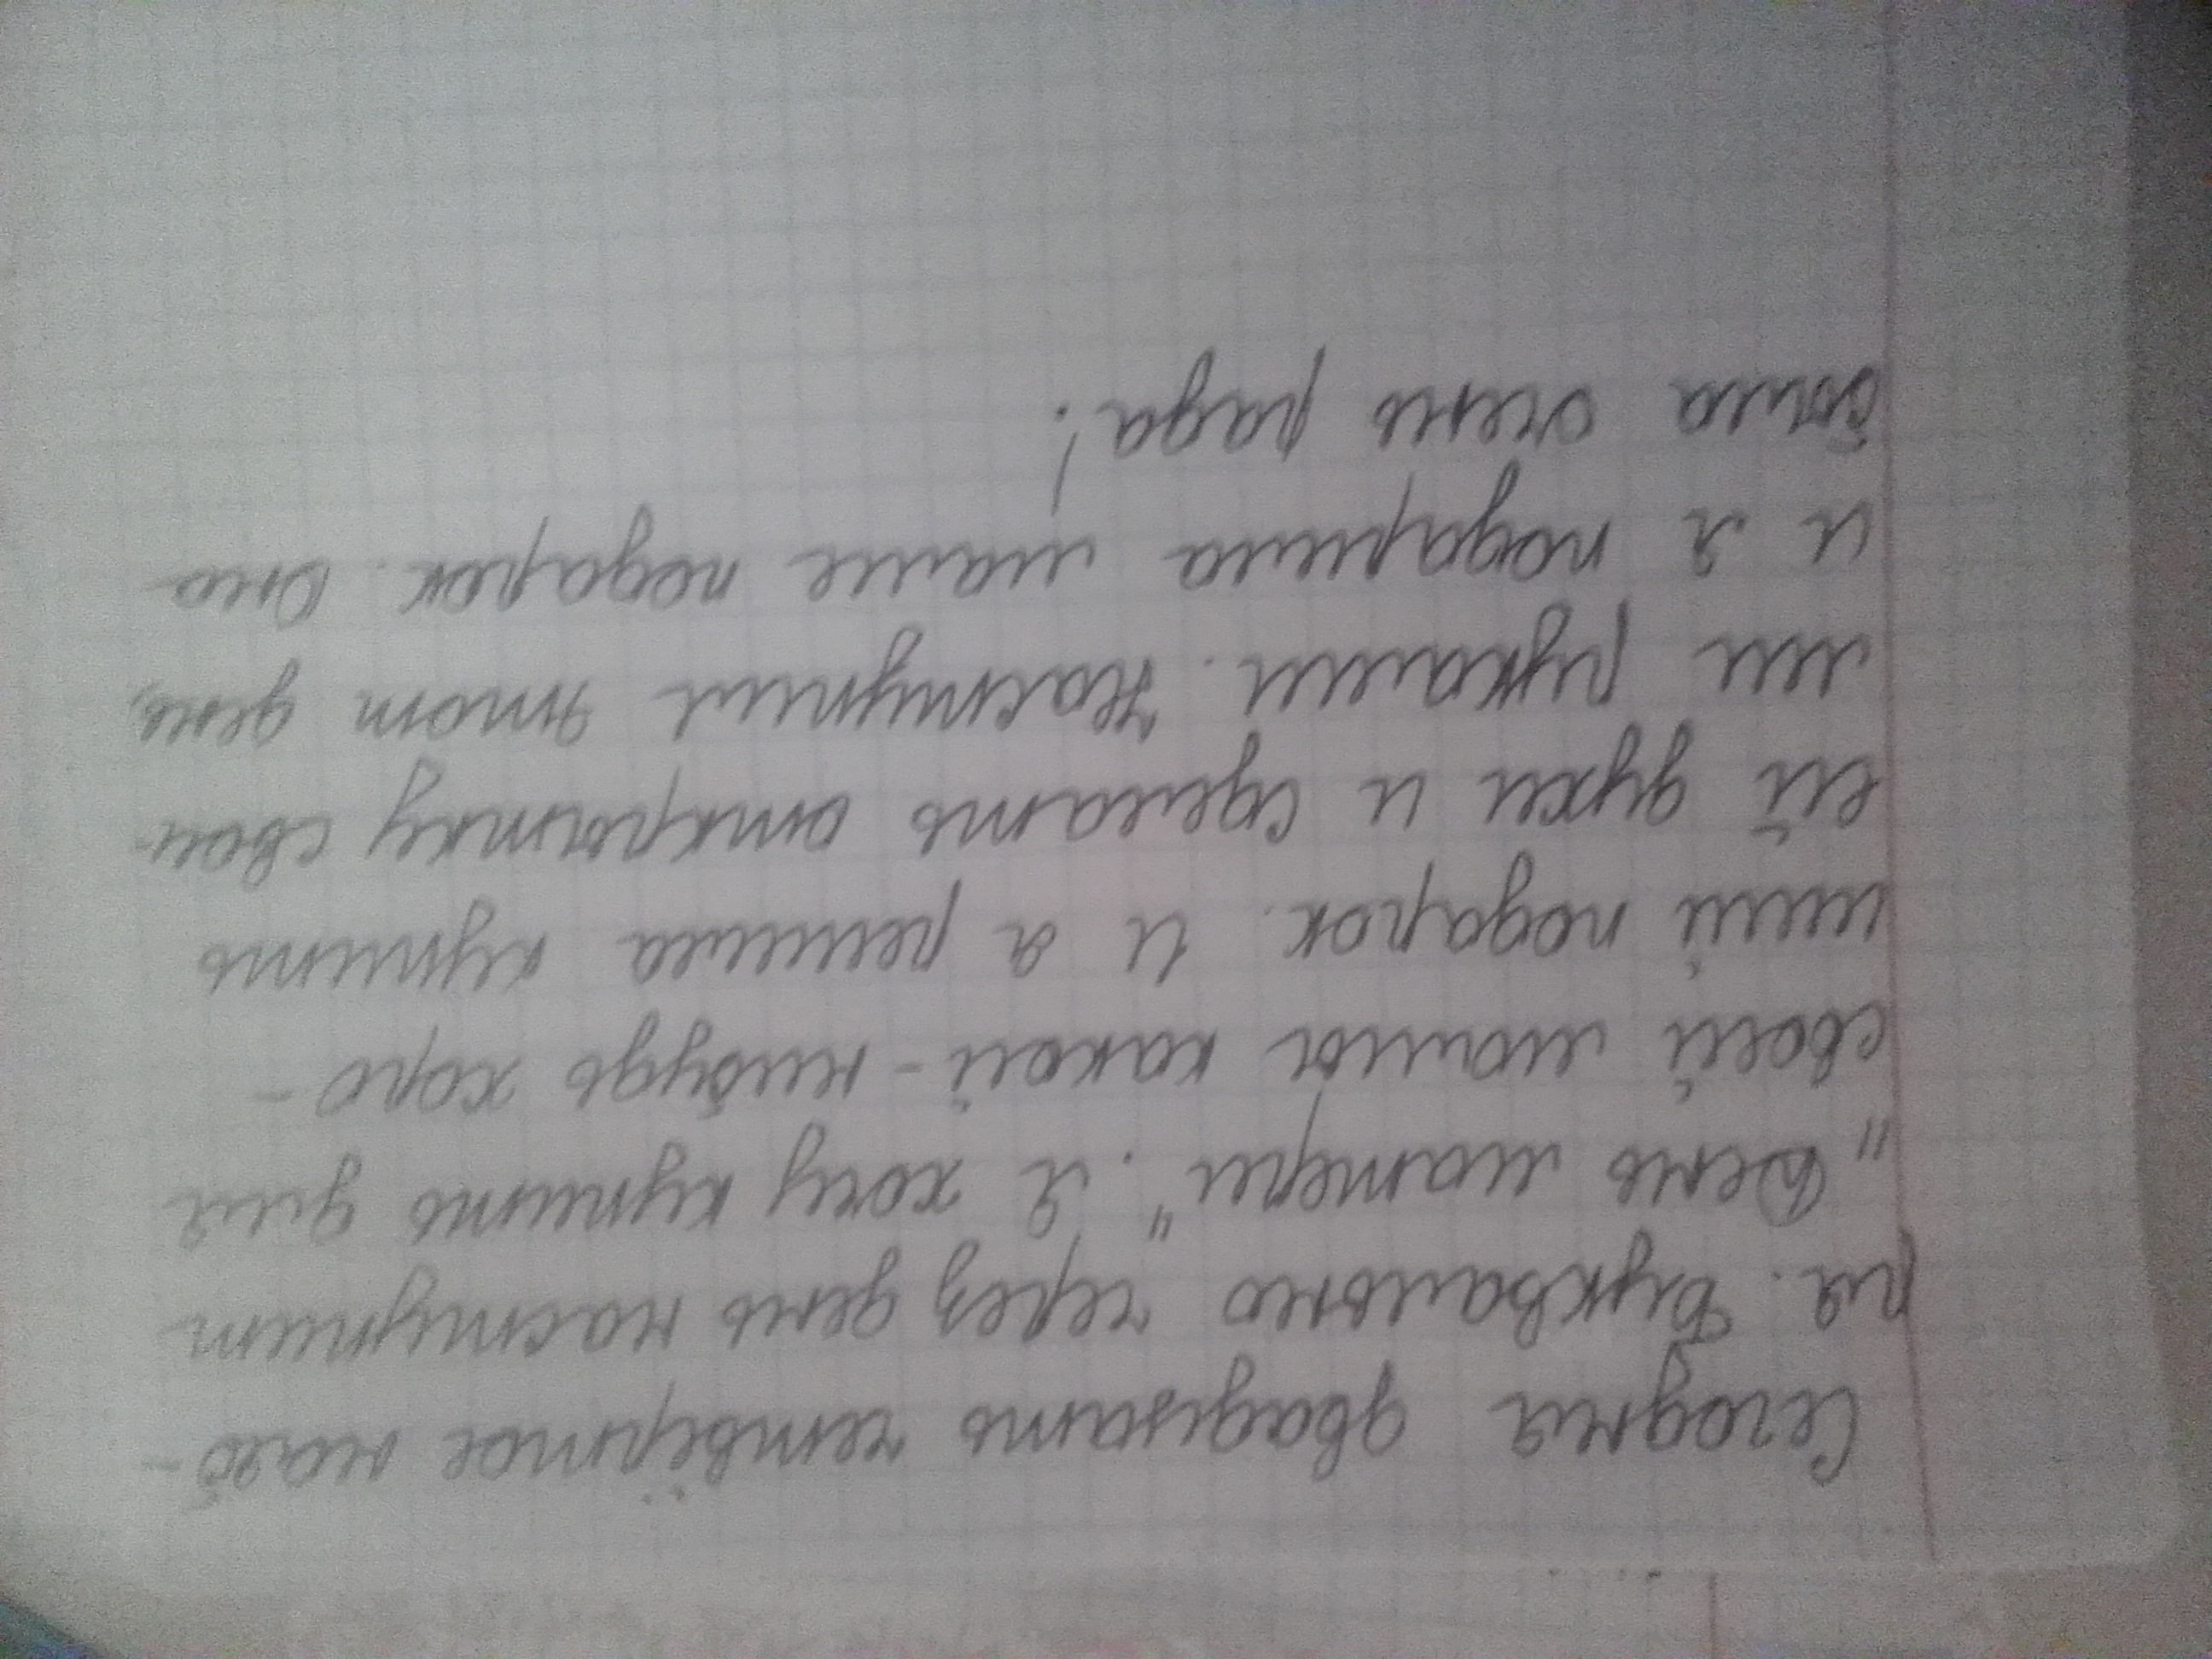 Сегодня двадцать четвёртое нояб-
ря. Буквально через день наступит
"День матери". Я хочу купить для
своей мамы какой-нибудь хоро-
ший подарок. И я решила купить
ей духи и сделать открытку свои-
ми руками. Наступил этот день,
и я подарила маме подарок. Она
была очень рада!